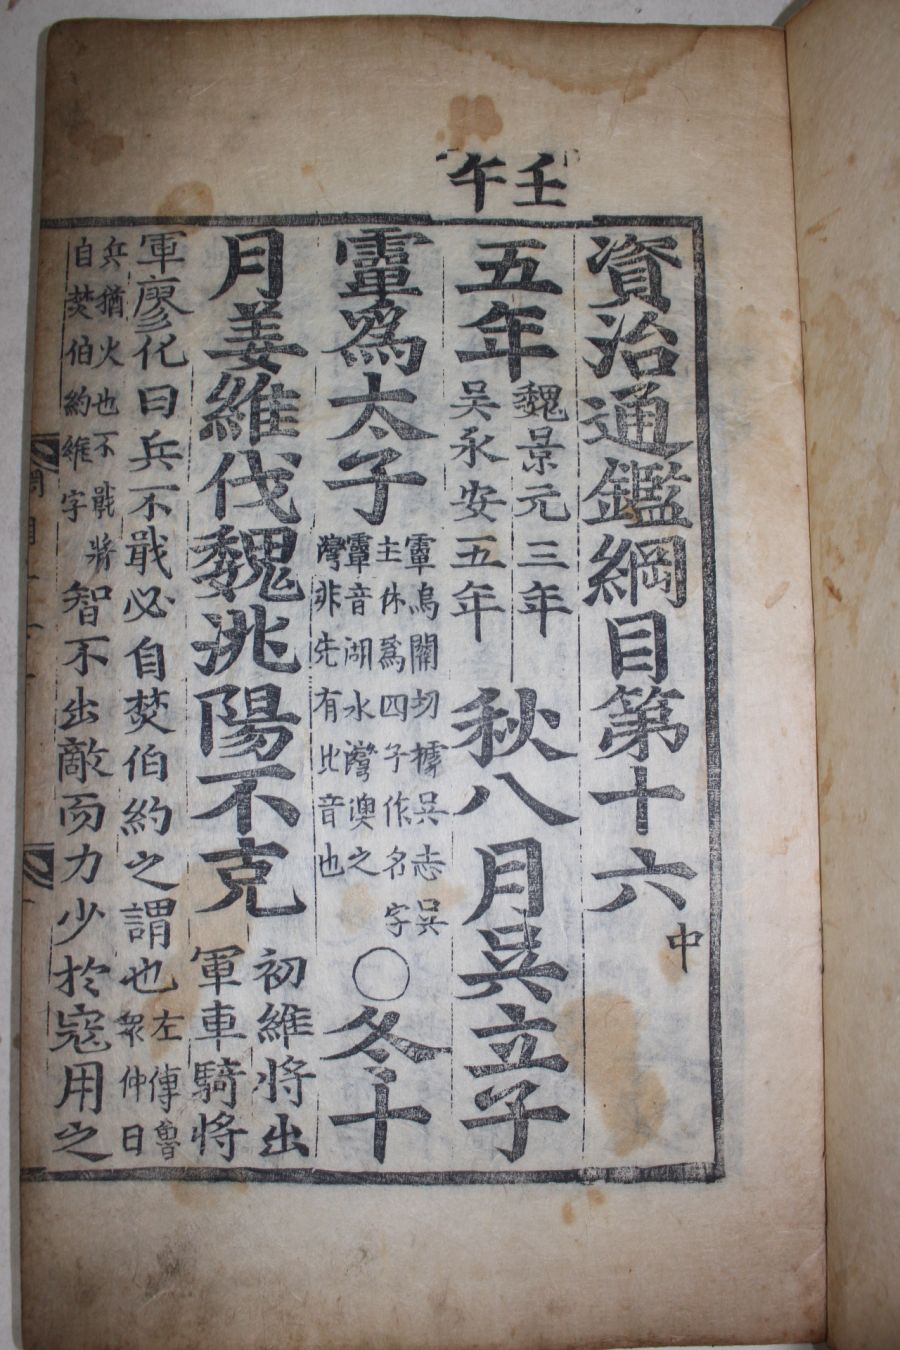 壬午
資治通鑑綱目第十六 中
五年
魏景元三年
吳永安五年
秋八月吳立子
𩅦爲太子
𩅦烏關切據吳志吳
主休爲四子作名字
𩅦音湖水灣澳之
灣非先有此音也
○冬十
月姜維伐魏洮陽不克
初維將出
軍車騎將
軍廖化曰兵不戢必自焚伯約之謂也
左傳魯
衆仲曰
兵猶火也不戢將
自焚伯約維字
智不出敵而力少於寇用之